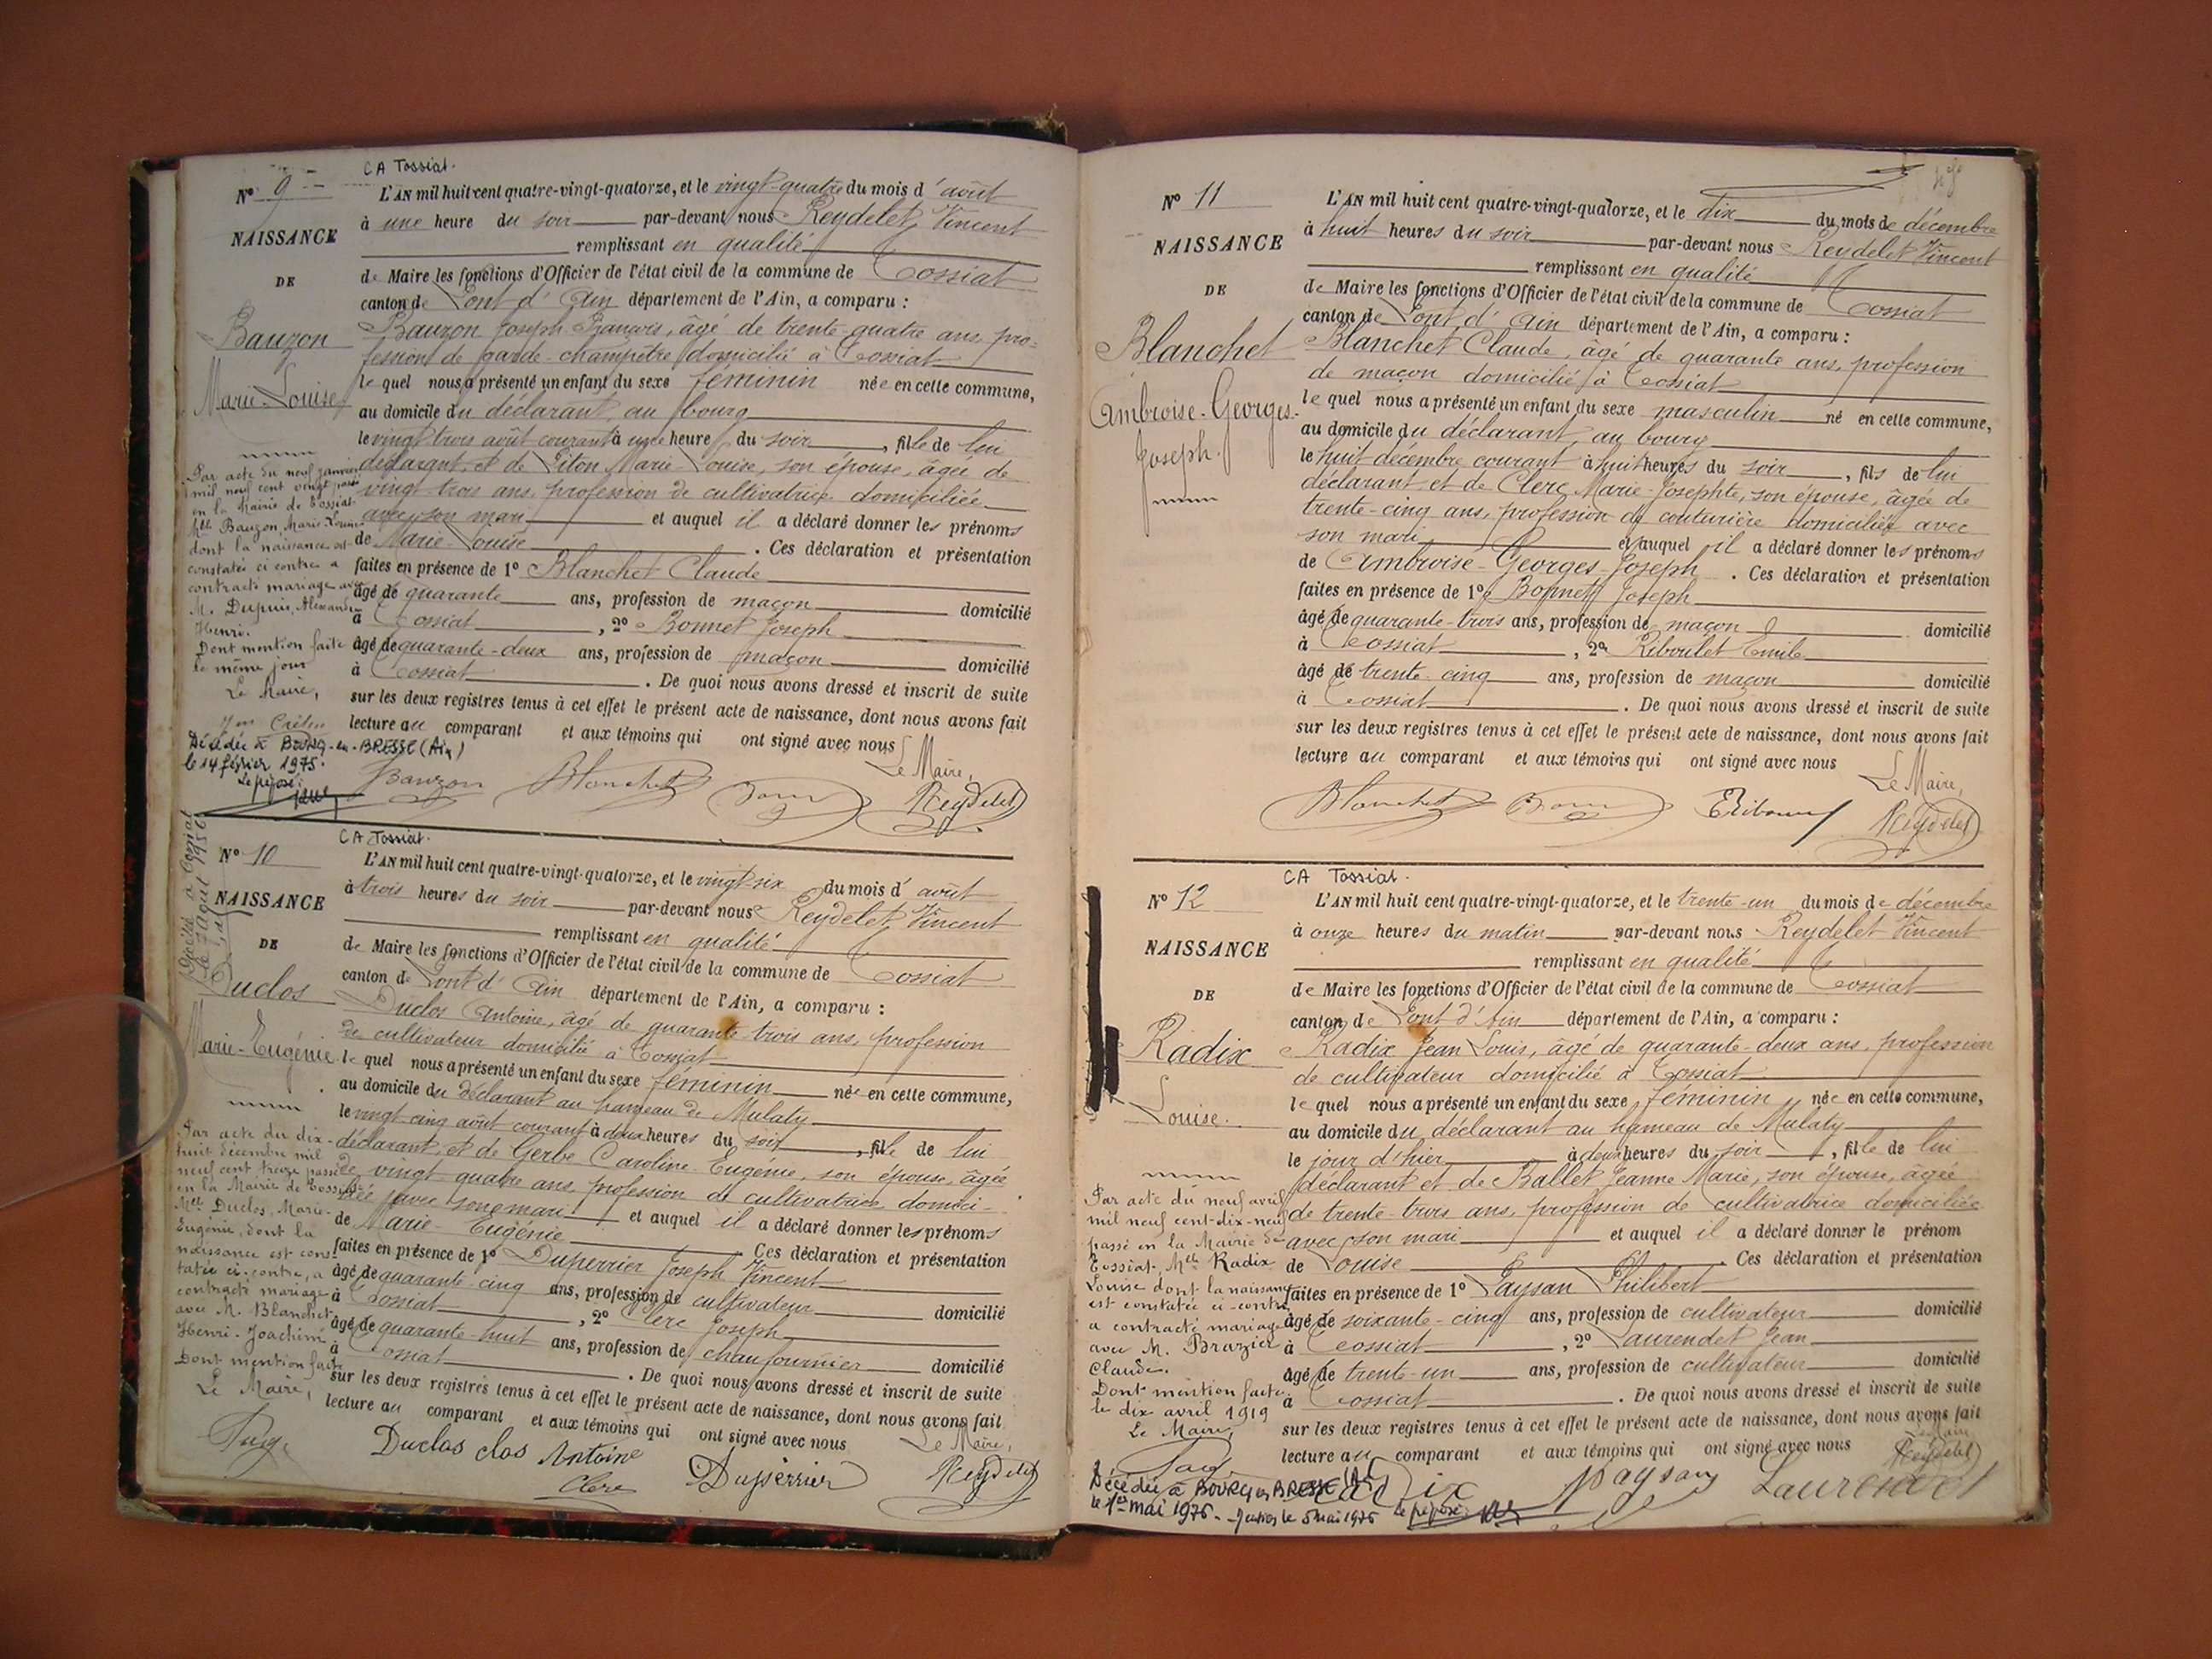 CA Tossiat.
N° 9
NAISSANCE
DE
Bauzon
Marie-Louise
L'AN mil huit cent quatre-vingt-quatorze, et le vingt-quatre du mois d'août
à une heure du soir par-devant nous Reydelet Vincent
remplissant en qualité
de Maire les fonctions d'Officier de l'état civil de la commune de Tossiat
canton de Pont d'Ain département de l'Ain, a comparu :
Bauzon Joseph François, âgé de trente-quatre ans, pro-
fession de garde-champêtre domicilié à Tossiat
le quel nous a présenté un enfant du sexe féminin née en cette commune,
au domicile du déclarant au bourg
le vingt trois août courant à une heure du soir, fille de lui
déclarant, et de Piton Marie-Louise, son épouse, âgée de
vingt-trois ans, profession de cultivatrice domiciliée
avec son mari et auquel il a déclaré donner les prénoms
de Marie-Louise. Ces déclaration et présentation
faites en présence de 1° Blanchet Claude
âgé de quarante ans, profession de maçon domicilié
à Tossiat, 2° Bonnet Joseph
âgé de quarante-deux ans, profession de maçon domicilié
à Tossiat. De quoi nous avons dressé et inscrit de suite
sur les deux registres tenus à cet effet le présent acte de naissance, dont nous avons fait
lecture au comparant et aux témoins qui ont signé avec nous
Le Maire,
Bauzon Blanchet Reydelet
Par acte du neuf janvier
mil neuf cent vingt passé
en la Mairie de Tossiat
Mlle Bauzon Marie Louise
dont la naissance est
constatée ci contre a
contracté mariage avec
M. Dupuis, Alexandre
Henri.
Dont mention faite
le même jour
Le Maire,
Décédée à BOURG-en-BRESSE (Ain)
le 14 février 1975.
Le préposé:
CA Tossiat.
N° 10
NAISSANCE
DE
Duclos
Marie-Eugénie
Décédée à Tossiat
le 7 août 1956
L'AN mil huit cent quatre-vingt-quatorze, et le vingt-six du mois d'août
à trois heures du soir par-devant nous Reydelet Vincent
remplissant en qualité
de Maire les fonctions d'Officier de l'état civil de la commune de Tossiat
canton de Pont d'Ain département de l'Ain, a comparu :
Duclos Antoine, âgé de quarante-trois ans, profession
de cultivateur domicilié à Tossiat
le quel nous a présenté un enfant du sexe féminin née en cette commune,
au domicile du déclarant au hameau de Mulaty
le vingt-cinq août courant à deux heures du soir, fille de lui
déclarant, et de Gerbe Caroline-Eugénie, son épouse, âgée
de vingt quatre ans, profession de cultivatrice domici-
liée avec son mari et auquel il a déclaré donner les prénoms
de Marie-Eugénie Ces déclaration et présentation
faites en présence de 1° Duperrier Joseph Vincent
âgé de quarante cinq ans, profession de cultivateur domicilié
à Tossiat, 2° Clerc Joseph
âgé de quarante-huit ans, profession de chaufournier domicilié
à Tossiat. De quoi nous avons dressé et inscrit de suite
sur les deux registres tenus à cet effet le présent acte de naissance, dont nous avons fait
lecture au comparant et aux témoins qui ont signé avec nous
Le Maire,
Duclos clos Antoine Duperrier Reydelet
Clerc
Par acte du dix-
huit décembre mil
neuf cent treize passé
en la Mairie de Tossiat
Mlle Duclos, Marie-
Eugénie, dont la
naissance est cons-
tatée ci-contre, a
contracté mariage
avec M. Blanchet
Henri-Joachim
Dont mention faite
Le Maire,
N° 11
NAISSANCE
DE
Blanchet
Ambroise-Georges-
Joseph.
L'AN mil huit cent quatre-vingt-quatorze, et le dix du mois de décembre
à huit heures du soir par-devant nous Reydelet Vincent
remplissant en qualité
de Maire les fonctions d'Officier de l'état civil de la commune de Tossiat
canton de Pont d'Ain département de l'Ain, a comparu :
Blanchet Claude, âgé de quarante ans, profession
de maçon domicilié à Tossiat
le quel nous a présenté un enfant du sexe masculin né en cette commune,
au domicile du déclarant, au bourg
le huit décembre courant à huit heures du soir, fils de lui
déclarant et de Clerc Marie-Josephte, son épouse, âgée de
trente-cinq ans, profession de couturière domiciliée avec
son mari et auquel il a déclaré donner les prénoms
de Ambroise-Georges-Joseph. Ces déclaration et présentation
faites en présence de 1° Bonnet Joseph
âgé de quarante-trois ans, profession de maçon domicilié
à Tossiat, 2° Riboulet Emile
âgé de trente-cinq ans, profession de maçon domicilié
à Tossiat. De quoi nous avons dressé et inscrit de suite
sur les deux registres tenus à cet effet le présent acte de naissance, dont nous avons fait
lecture au comparant et aux témoins qui ont signé avec nous
Le Maire,
Blanchet Reydelet
CA Tossiat.
N° 12
NAISSANCE
DE
Radix
Louise.
L'AN mil huit cent quatre-vingt-quatorze, et le trente-un du mois de décembre
à onze heures du matin par-devant nous Reydelet Vincent
remplissant en qualité
de Maire les fonctions d'Officier de l'état civil de la commune de Tossiat
canton de Pont d'Ain département de l'Ain, a comparu :
Radix Jean Louis, âgé de quarante-deux ans, profession
de cultivateur domicilié à Tossiat
le quel nous a présenté un enfant du sexe féminin née en cette commune,
au domicile du déclarant au hameau de Mulaty
le jour d'hier à deux heures du soir, fille de lui
déclarant et de Ballet Jeanne Marie, son épouse, âgée
de trente-trois ans, profession de cultivatrice domiciliée
avec son mari et auquel il a déclaré donner le prénom
de Louise. Ces déclaration et présentation
faites en présence de 1° Paysan Philibert
âgé de soixante-cinq ans, profession de cultivateur domicilié
à Tossiat, 2° Laurendet Jean
âgé de trente-un ans, profession de cultivateur domicilié
à Tossiat. De quoi nous avons dressé et inscrit de suite
sur les deux registres tenus à cet effet le présent acte de naissance, dont nous avons fait
lecture au comparant et aux témoins qui ont signé avec nous
Le Maire
Reydelet
Radix Paysan Laurendet
Par acte du neuf avril
mil neuf cent-dix-neuf
passé en la Mairie de
Tossiat, Mlle Radix
Louise dont la naissance
est constatée ci-contre
a contracté mariage
avec M. Brazier
Claude.
Dont mention faite
le dix avril 1919
Le Maire,
Décédée à BOURG en BRESSE (Ain)
le 1er mai 1976. le 5 mai 1976 Le préposé: